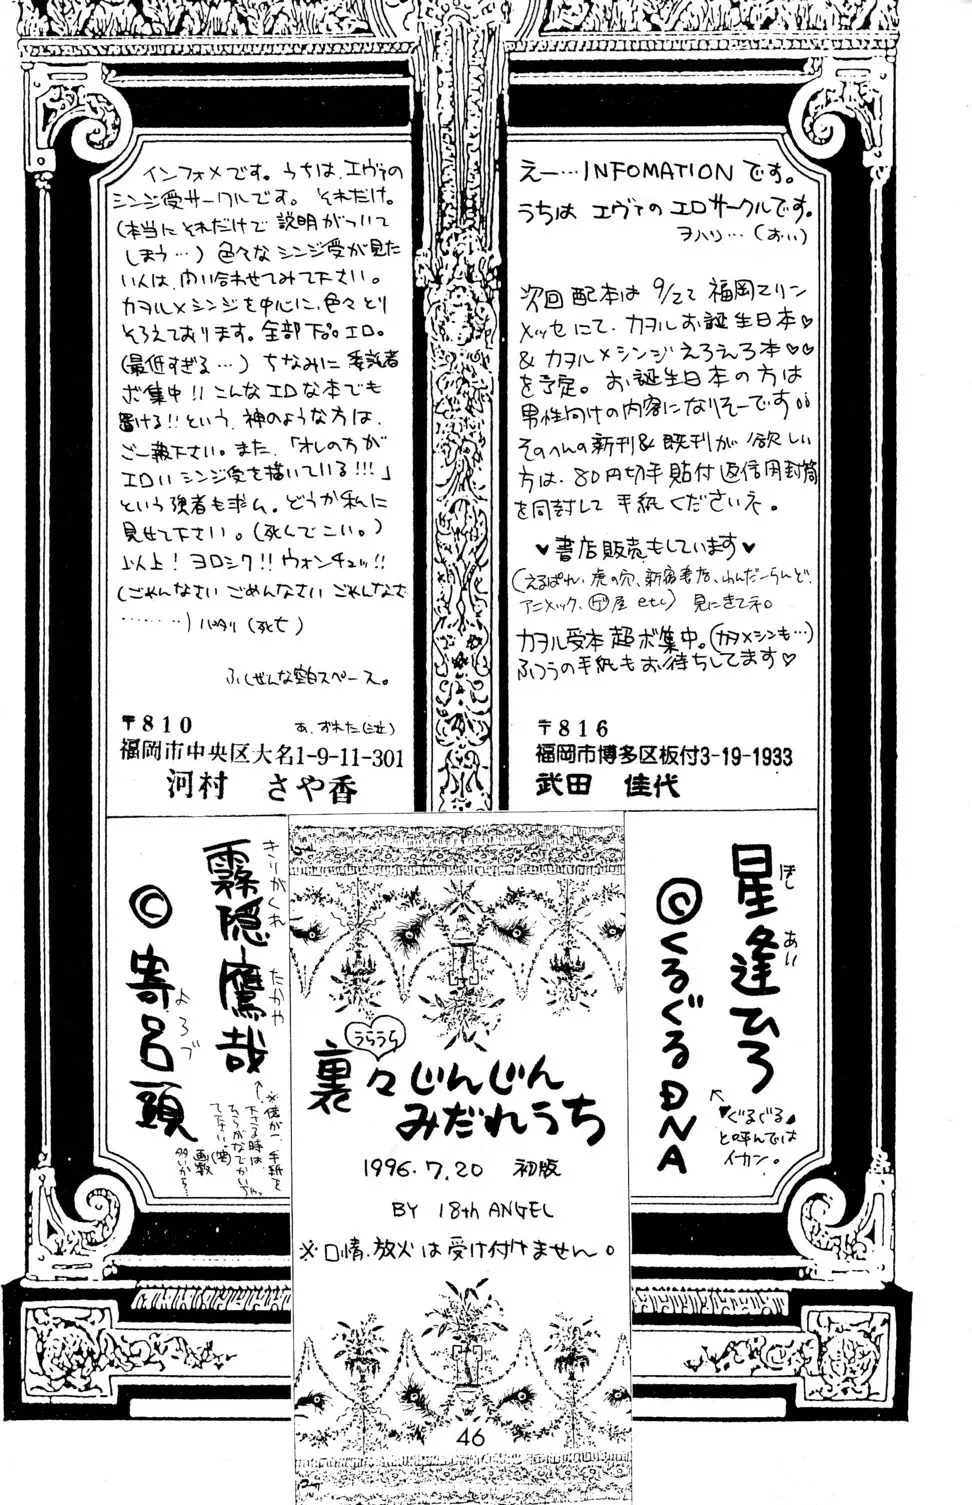 インフォメです。うちは、エヴァの
シンジ受サークルです。それだけ。
(本当にそれだけで説明がついて
しまう…)色々なシンジ受が見た
い人は、問い合わせてみて下さい。
カヲル×シンジを中心に、色々とり
そろえております。全部下品。エロ。
(最低すぎる…)ちなみに委託者
ボ集中!!こんなエロな本でも
置ける!!という、神のような方は、
ご一報下さい。また、「オレの方が
エロいシンジ受を描いている!!!」
という強者も求ム。どうか私に
見せて下さい。(死んでこい。)
以上!ヨロシク!!ウォンチュッ!!
(ごめんなさい ごめんなさい ごめんなさ
………)バタリ(死亡)
ふしぜんな空白スペース。
あ、ずれた(泣)
〒810
福岡市中央区大名1-9-11-301
河村 さや香
えー…INFOMATIONです。
うちは エヴァのエロサークルです。
ヲハリ…(おい)
次回配本は 9/22 福岡マリン
メッセにて、カヲルお誕生日本♡
&カヲル×シンジえろえろ本♡♡
を予定。お誕生日本の方は
男性向けの内容になりそーです
そのへんの新刊&既刊が欲しい
方は、80円切手貼付返信用封筒
を同封して 手紙くださいネ。
♥書店販売もしています♥
(えるぱれ、虎の穴、新宿書店、わんだーらんど、
アニメック、㋘屋 etc)見にきてネ。
カヲル受本 超ボ集中。(カヲ×シンも…)
ふつうの手紙もお待ちしてます♡
〒816
福岡市博多区板付3-19-1933
武田 佳代
霧隠鷹哉
きりがくれ たかや
©寄呂頭
よろづ
※僕が、手紙を
下さる時は、
ひらがなでかいて
下さい。(笑)
画数
多いから…
裏々じんじん
うらうら
みだれうち
1996.7.20 初版
BY 18th ANGEL
※口情、放火は受け付けません。
46
星逢ひろ
ほし あい
©くるぐるDNA
♥ぐるぐる♥
と呼んでは
イカン。